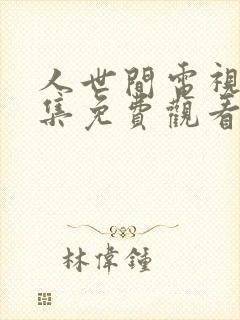 人世間電視
集免費觀看
林偉鍾